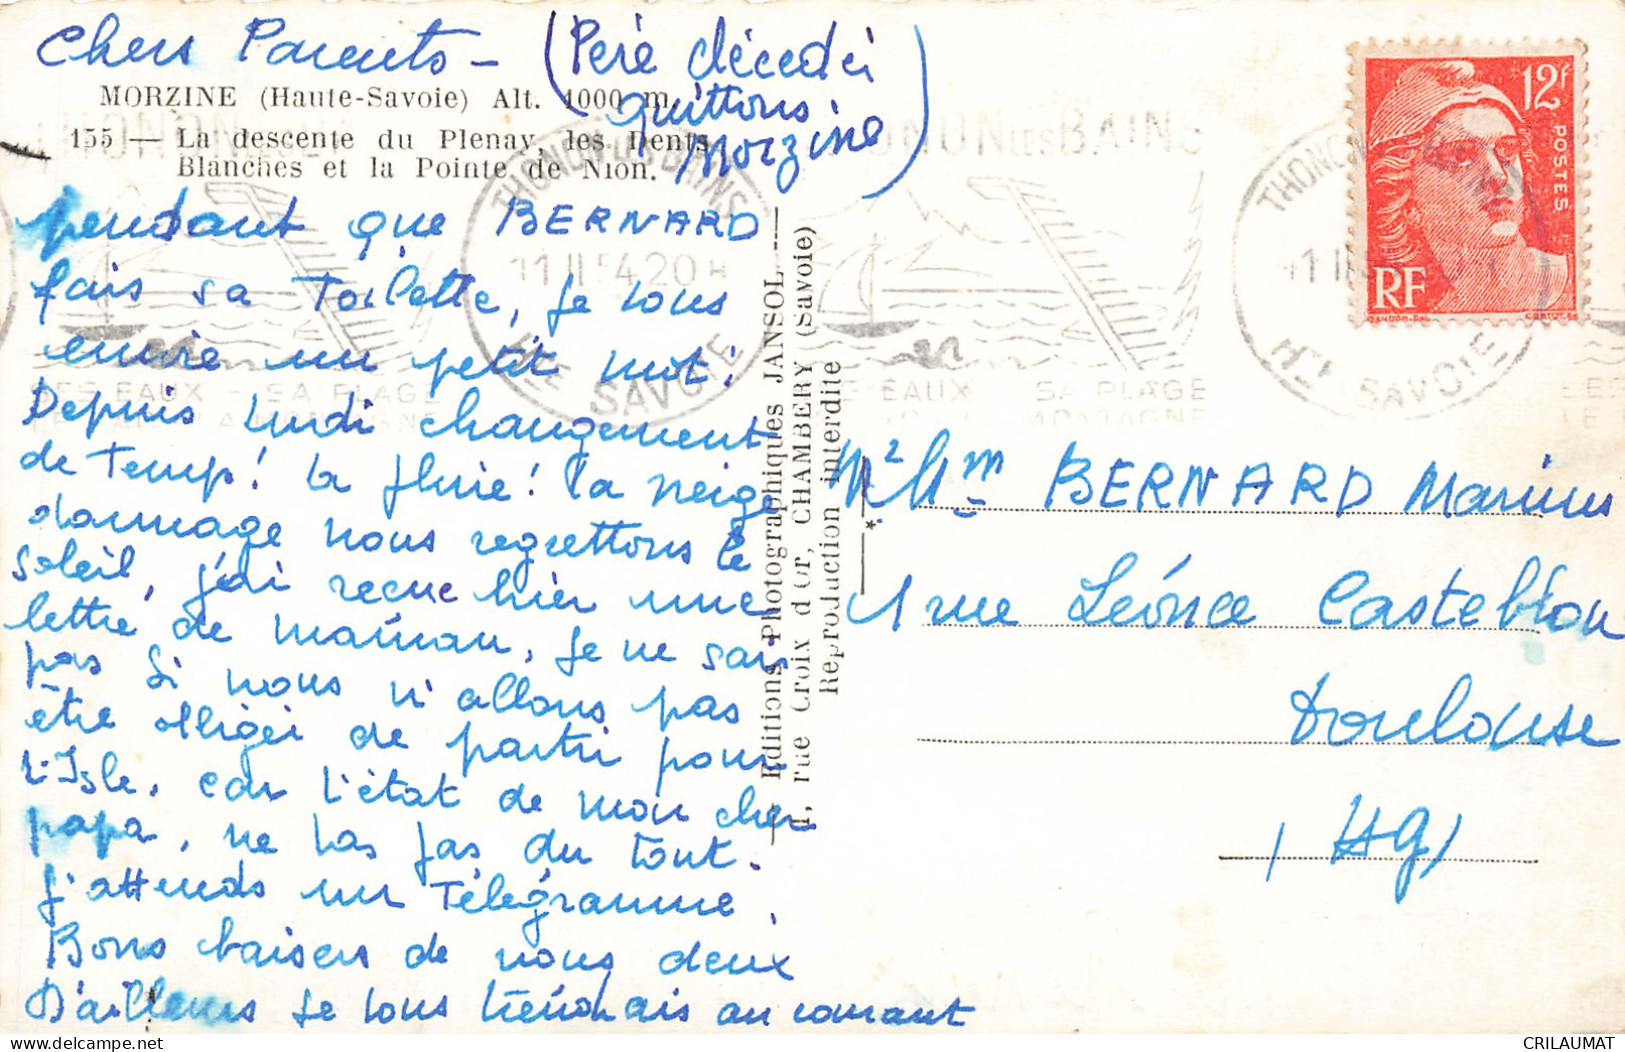 Chers Parents - (Père décedéi
quittons
Morzine)
MORZINE (Haute-Savoie) Alt. 1000 m.
155 — La descente du Plenay, les Dents
Blanches et la Pointe de Nion.
pendant que BERNARD
fais sa Toilette, je vous
envoie un petit mot:
Depuis Lundi changement
de Temp! la pluie! la neige
dommage nous regrettons le
soleil, j'ai recue hier une
lettre de maman, je ne sais
pas si nous n'allons pas
être obligéi de partir pour
L'Isle, car l'état de mon cher
papa, ne vas pas du tout.
J'attends un Télégramme,
Bons baisers de nous deux
D'ailleurs je vous tiendrais au courant
Editions Photographiques JANSOL
1, rue Croix d'Or, CHAMBERY (Savoie)
Reproduction interdite
*
THONON LES BAINS
11 II 54.20 H
Hte SAVOIE
THONON LES BAINS
LES EAUX - SA PLAGE
MONTAGNE
12F
POSTES
RF
GANDON
Mr Mm BERNARD Marius
1 rue Léonce Castelbou
Toulouse
(HG)
CRILAUMAT